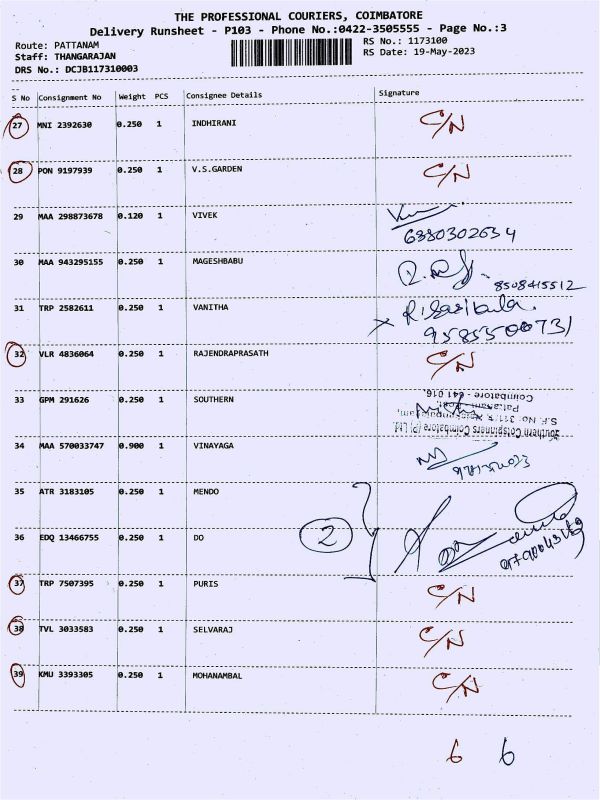 THE PROFESSIONAL COURIERS, COIMBATORE
Delivery Runsheet - P103 - Phone No.:0422-3505555 - Page No.:3
Route: PATTANAM RS No.: 1173100
Staff: THANGARAJAN RS Date: 19-May-2023
DRS No.: DCJB117310003
S No Consignment No Weight PCS Consignee Details Signature
27 MNI 2392630 0.250 1 INDHIRANI C/N
28 PON 9197939 0.250 1 V.S.GARDEN C/N
29 MAA 298873678 0.120 1 VIVEK
6380302634
30 MAA 943295155 0.250 1 MAGESHBABU
8508415512
31 TRP 2582611 0.250 1 VANITHA
9585500731
32 VLR 4836064 0.250 1 RAJENDRAPRASATH C/N
33 GPM 291626 0.250 1 SOUTHERN
Southern Cotspinners Coimbatore (P) Ltd.
Coimbatore - 641 016.
34 MAA 570033747 0.900 1 VINAYAGA
35 ATR 3183105 0.250 1 MENDO
2
36 EDQ 13466755 0.250 1 DO
37 TRP 7507395 0.250 1 PURIS C/N
38 TVL 3033583 0.250 1 SELVARAJ C/N
39 KMU 3393305 0.250 1 MOHANAMBAL C/N
6 6